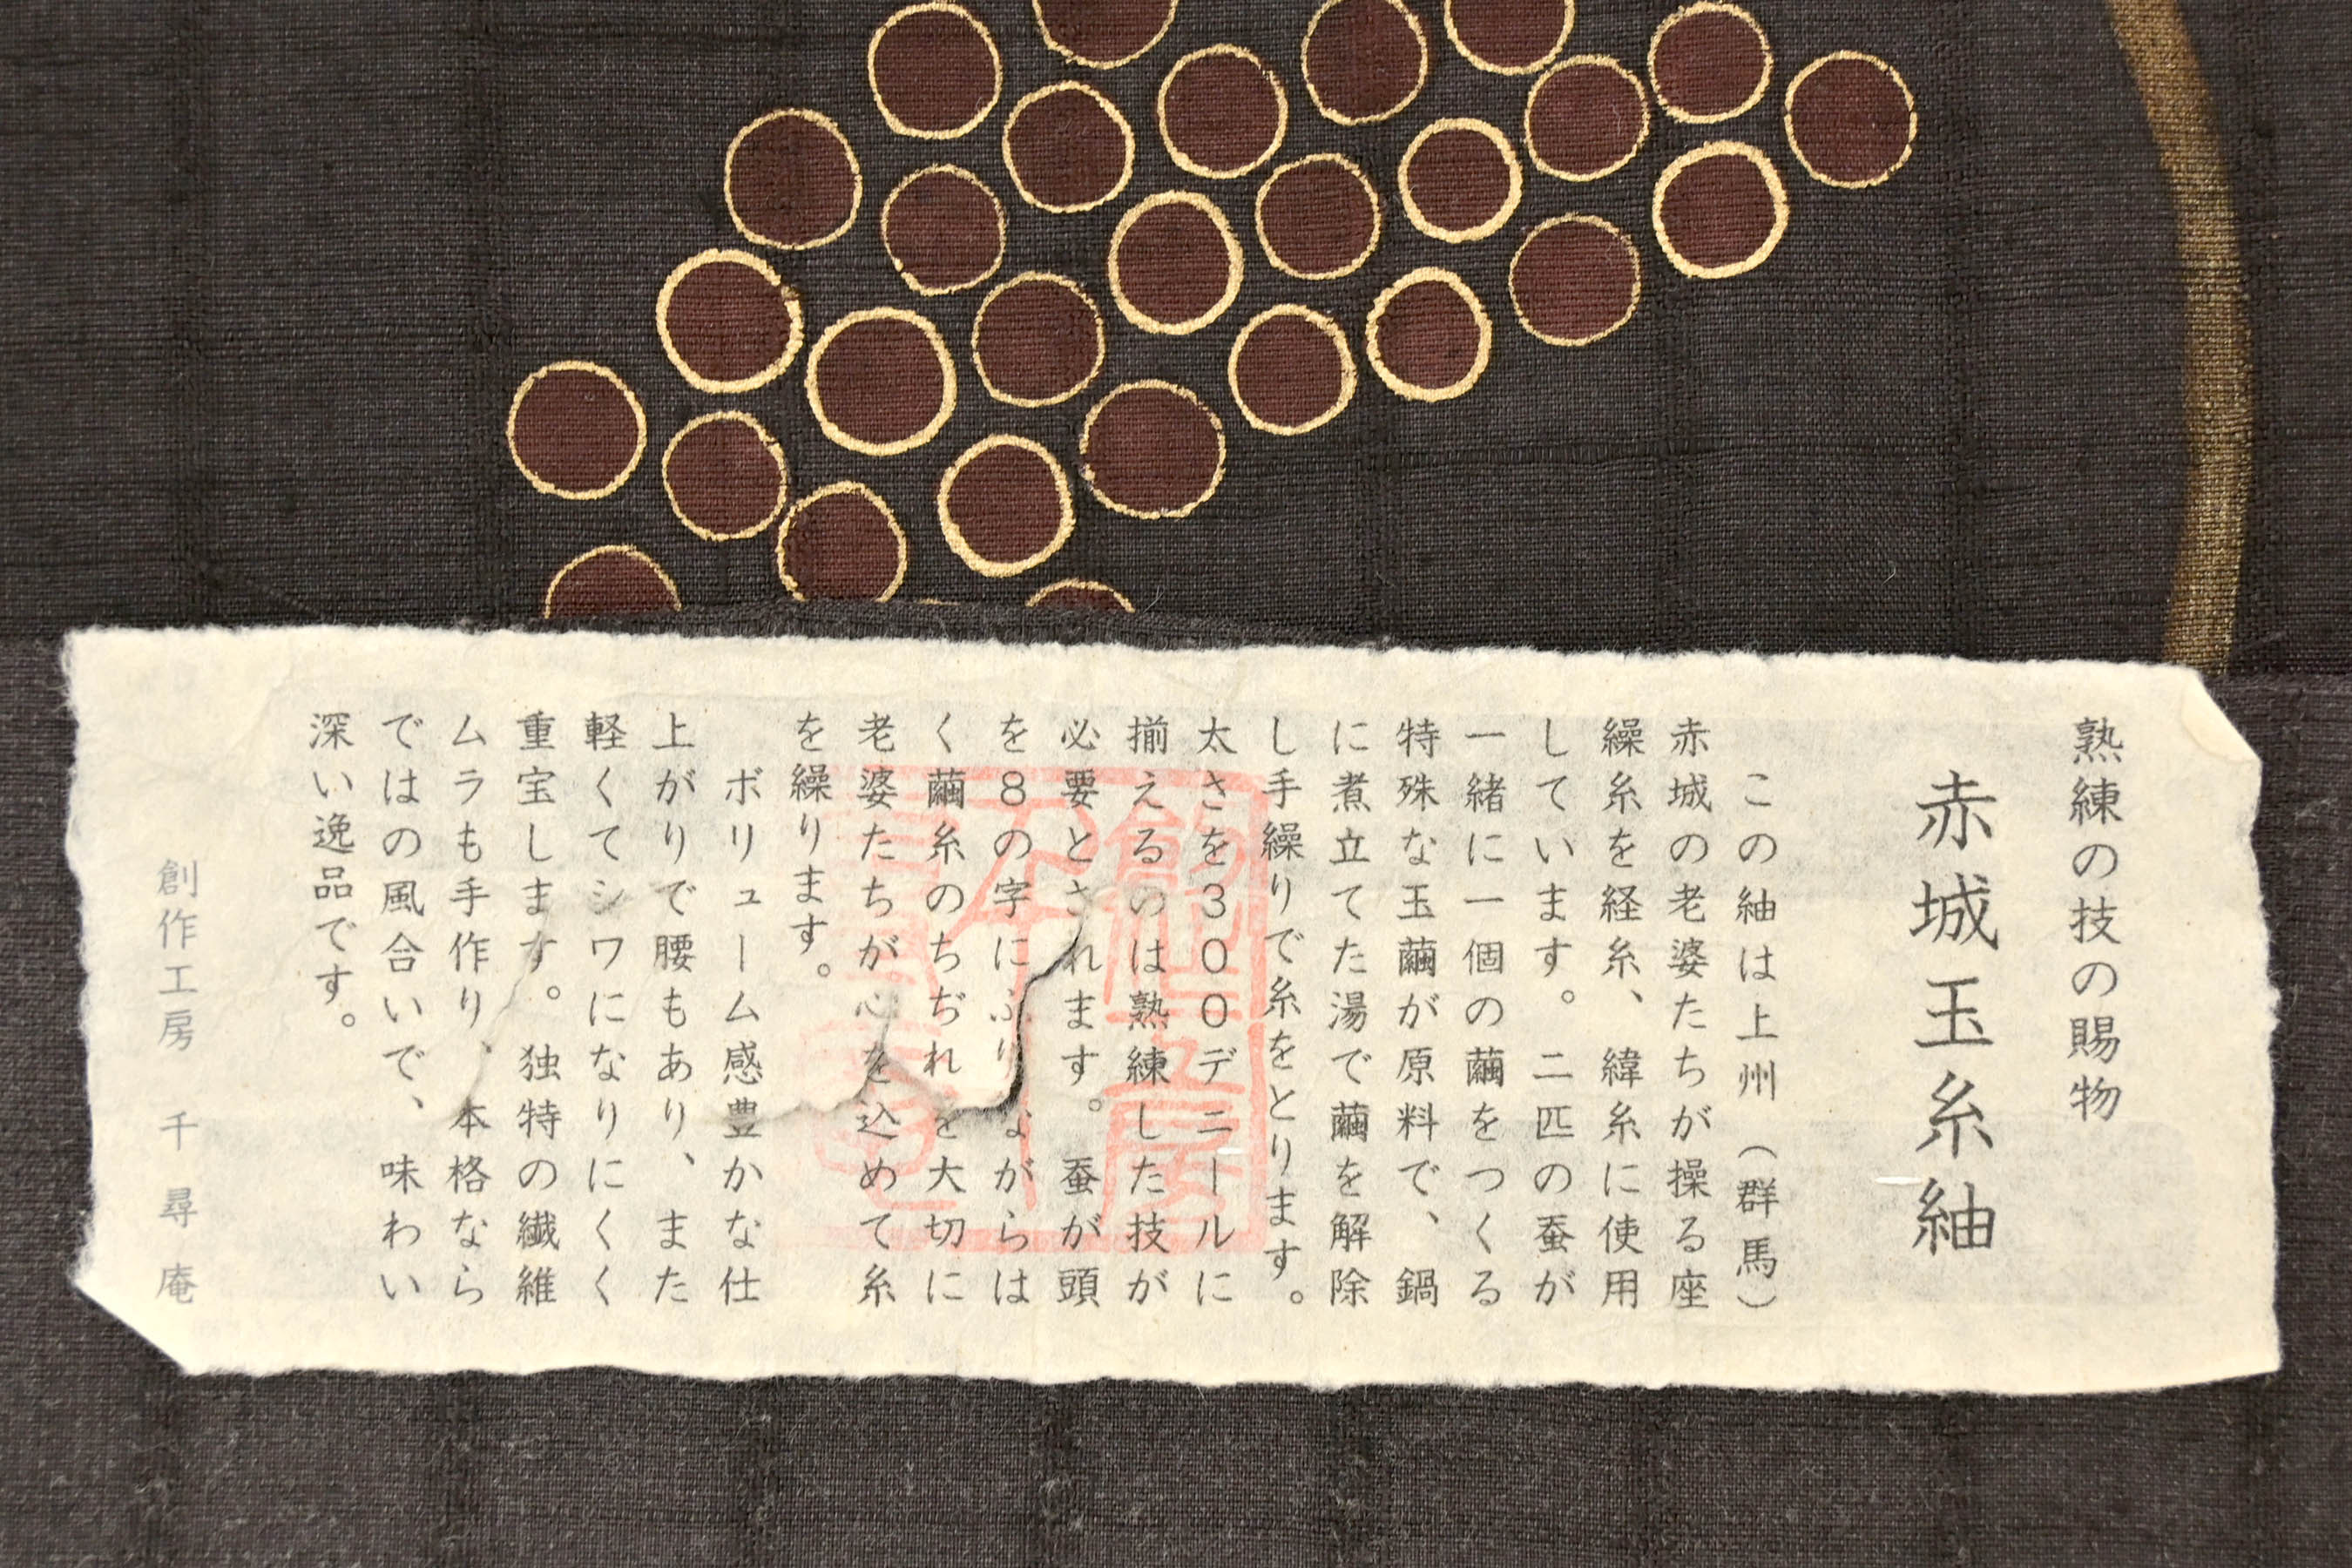 熟練の技の賜物
赤城玉糸紬
この紬は上州（群馬）
赤城の老婆たちが操る座
繰糸を経糸、緯糸に使用
しています。二匹の蚕が
一緒に一個の繭をつくる
特殊な玉繭が原料で、鍋
に煮立てた湯で繭を解除
し手繰りで糸をとります。
太さを300デニールに
揃えるのは熟練した技が
必要とされます。蚕が頭
を8の字にふりながらは
く繭糸のちぢれを大切に
老婆たちが心を込めて糸
を繰ります。
ボリューム感豊かな仕
上がりで腰もあり、また
軽くてシワになりにくく
重宝します。独特の繊維
ムラも手作り、本格なら
ではの風合いで、味わい
深い逸品です。
創作工房 千尋庵